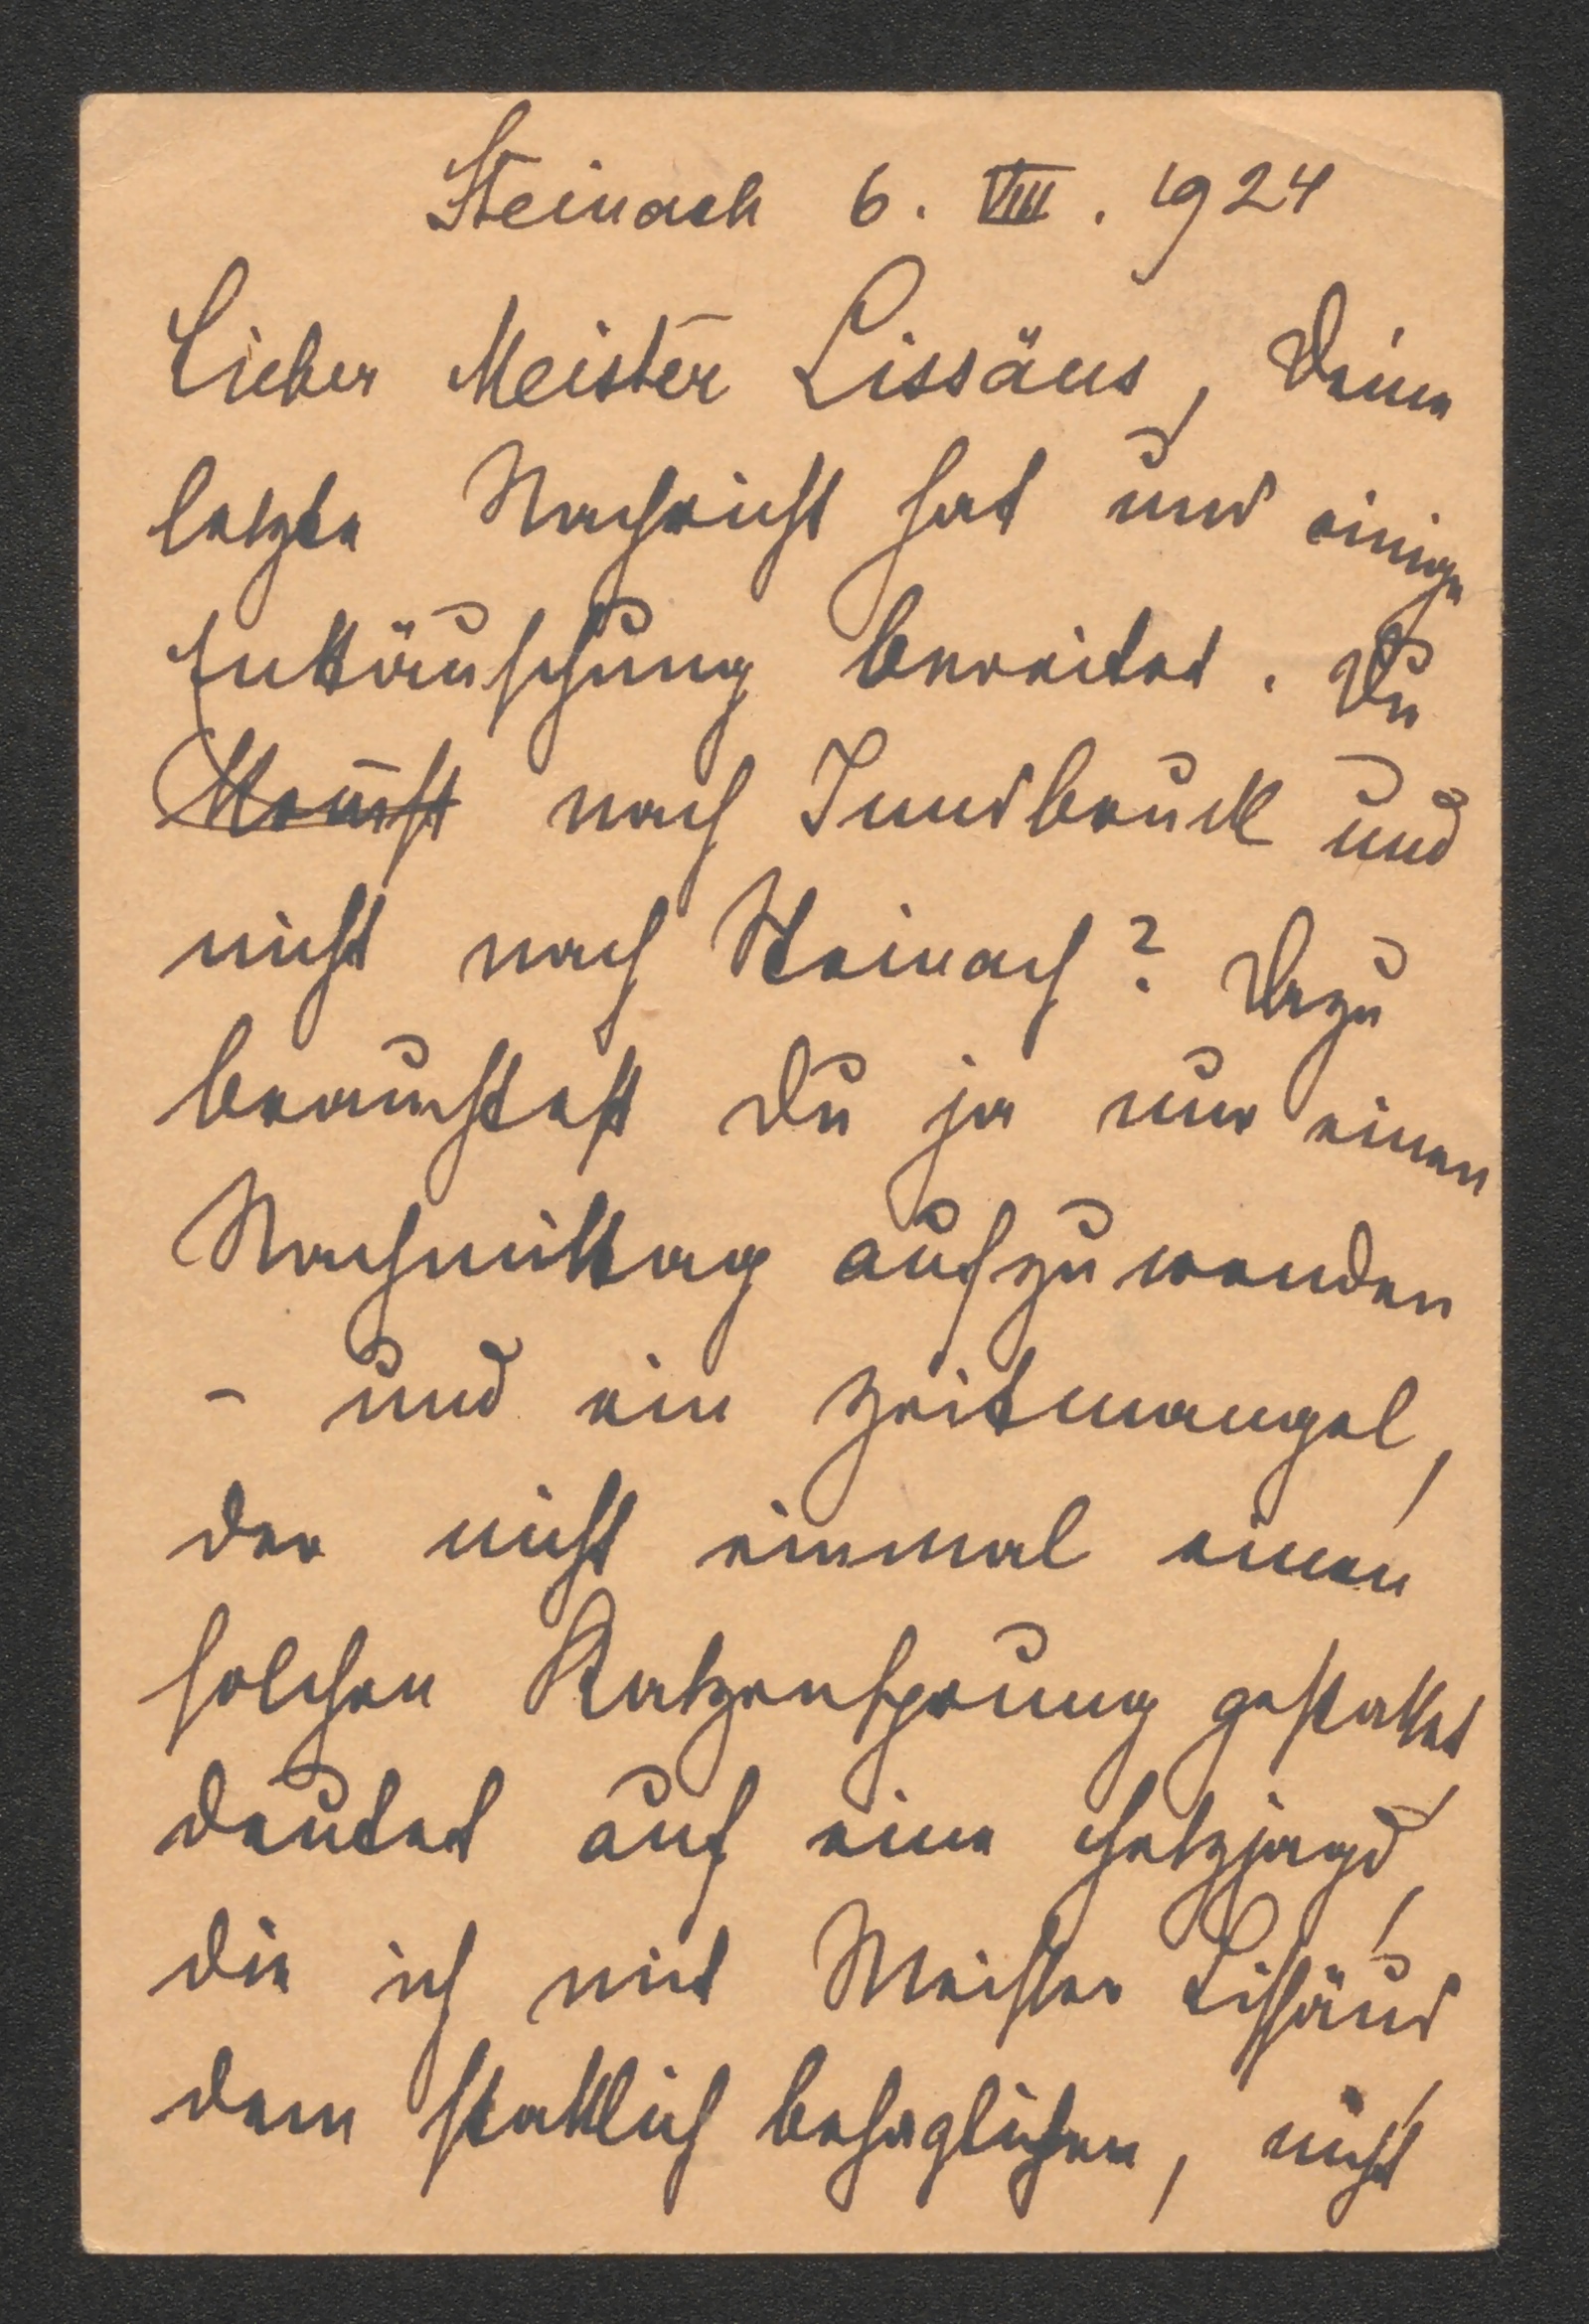 Steinach 6. VIII. 1924
Lieber Meister Lissäus, Deine
letzte Nachricht hat uns einige
Enttäuschung bereitet. Du
nach Innsbruck und
nicht nach Steinach? Dazu
brauchtest Du ja nur einen
Nachmittag aufzuwenden
- und ein Zeitmangel,
der nicht einmal einen
solchen Katzensprung gestattet
deutet auf eine Hetzjagd,
die ich mit Meister Lissäus,
dem stattlich behaglichen, nicht